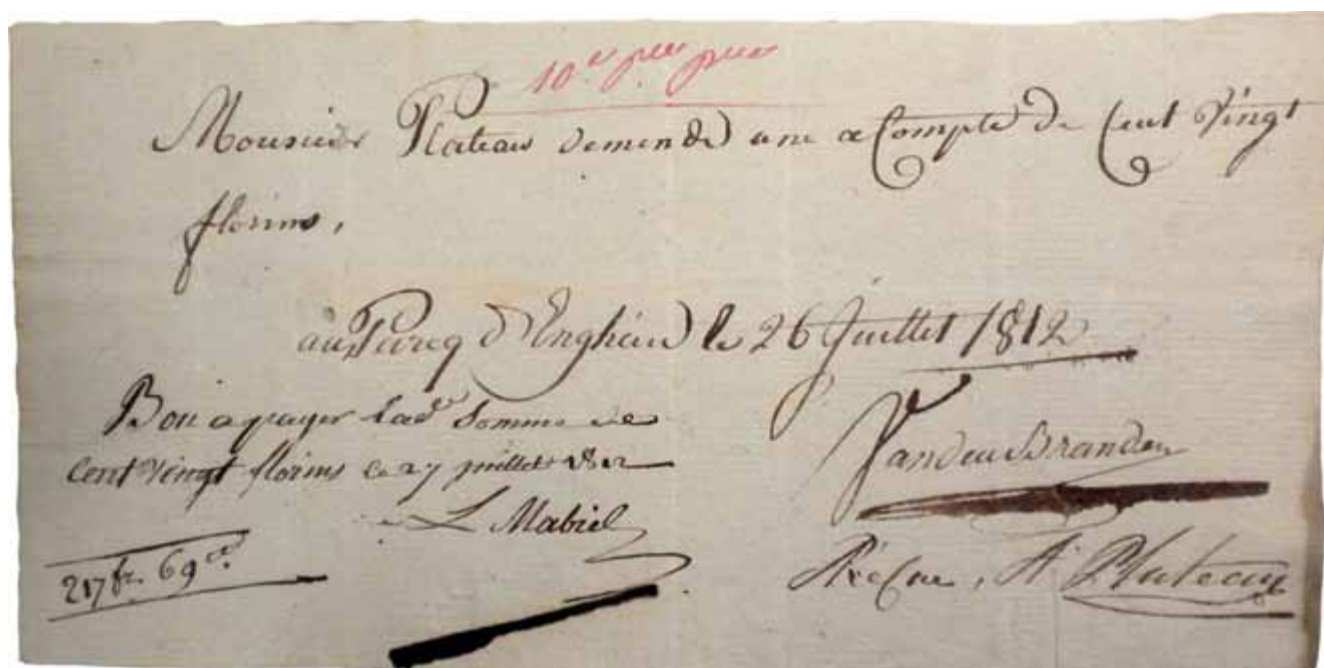 10e
Monsieur Plateau demende une a Compte de Cent Vingt
florins,
au Parcq d'Enghien le 26 Juillet 1812
Bon a payer lade Somme de
Cent Vingt florins ce 27 juillet 1812
L Mabiel
217 fr. 69 ce.
Vanden Branden
A Plateau